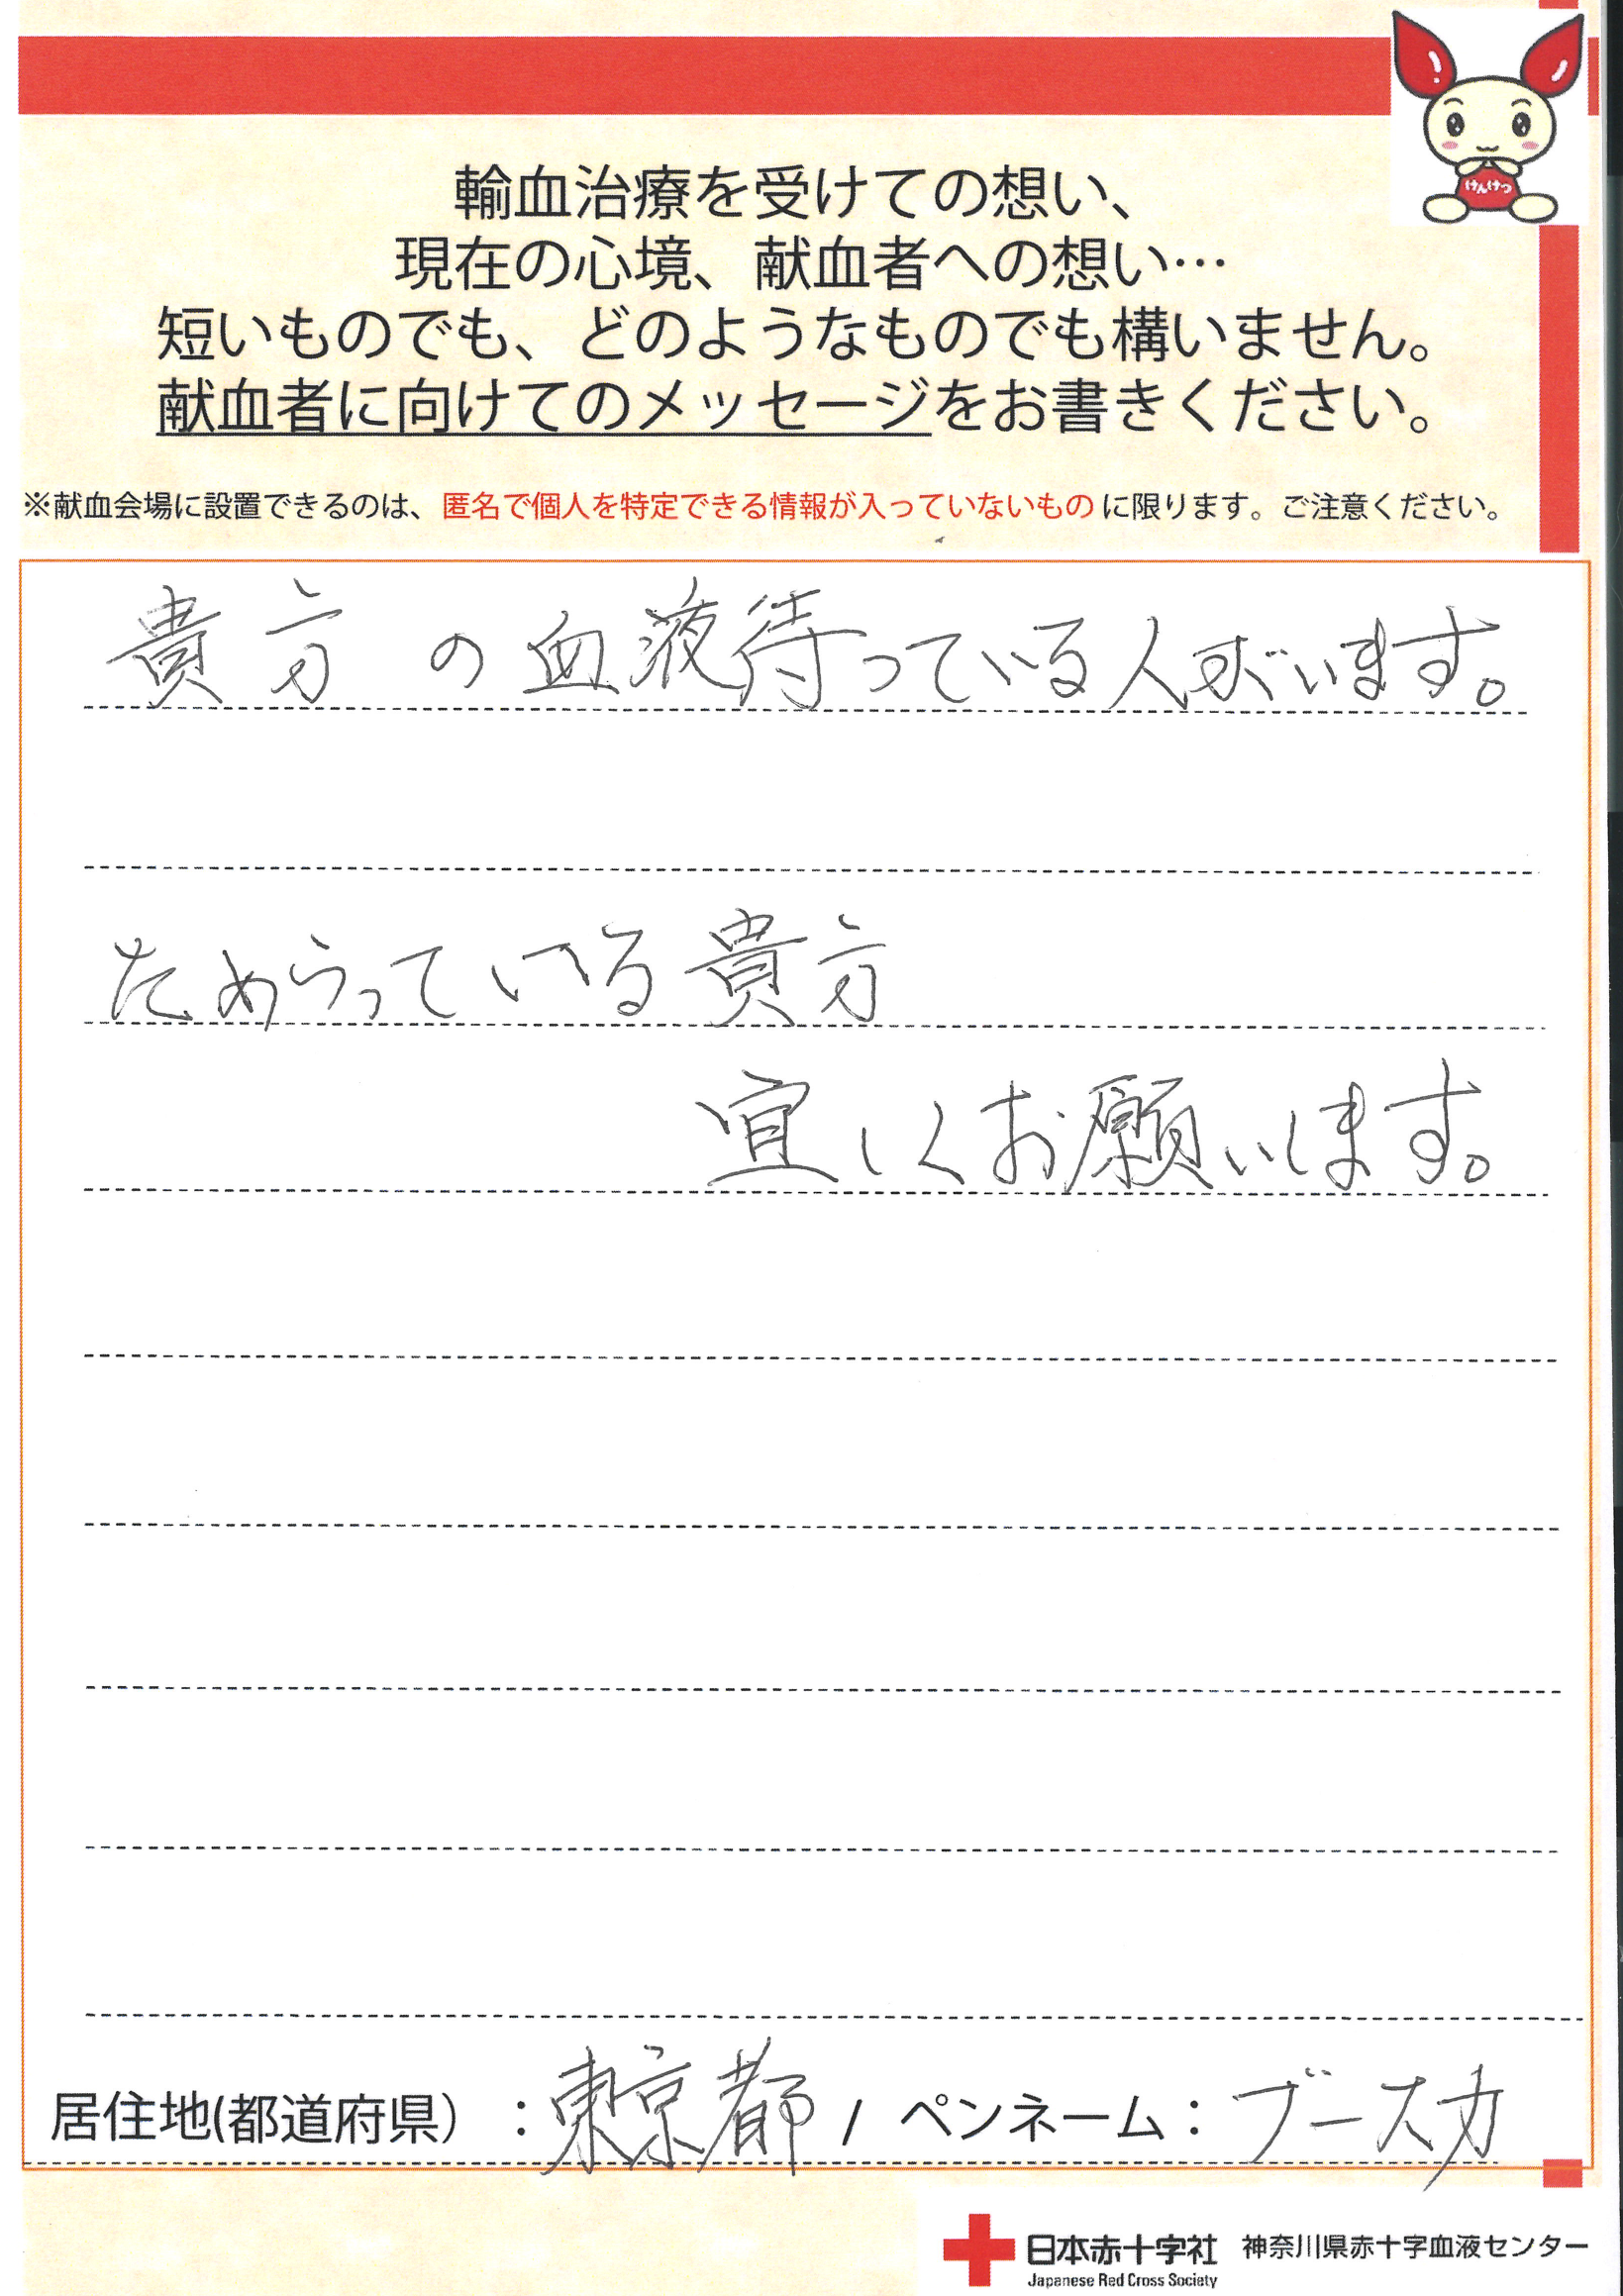 けんけつ
輸血治療を受けての想い、
現在の心境、献血者への想い…
短いものでも、どのようなものでも構いません。
献血者に向けてのメッセージをお書きください。
※献血会場に設置できるのは、匿名で個人を特定できる情報が入っていないものに限ります。ご注意ください。
貴方の血液待っている人がいます。
ためらっている貴方
宜しくお願いします。
居住地(都道府県）：東京都 / ペンネーム：ブースカ
日本赤十字社 神奈川県赤十字血液センター
Japanese Red Cross Society